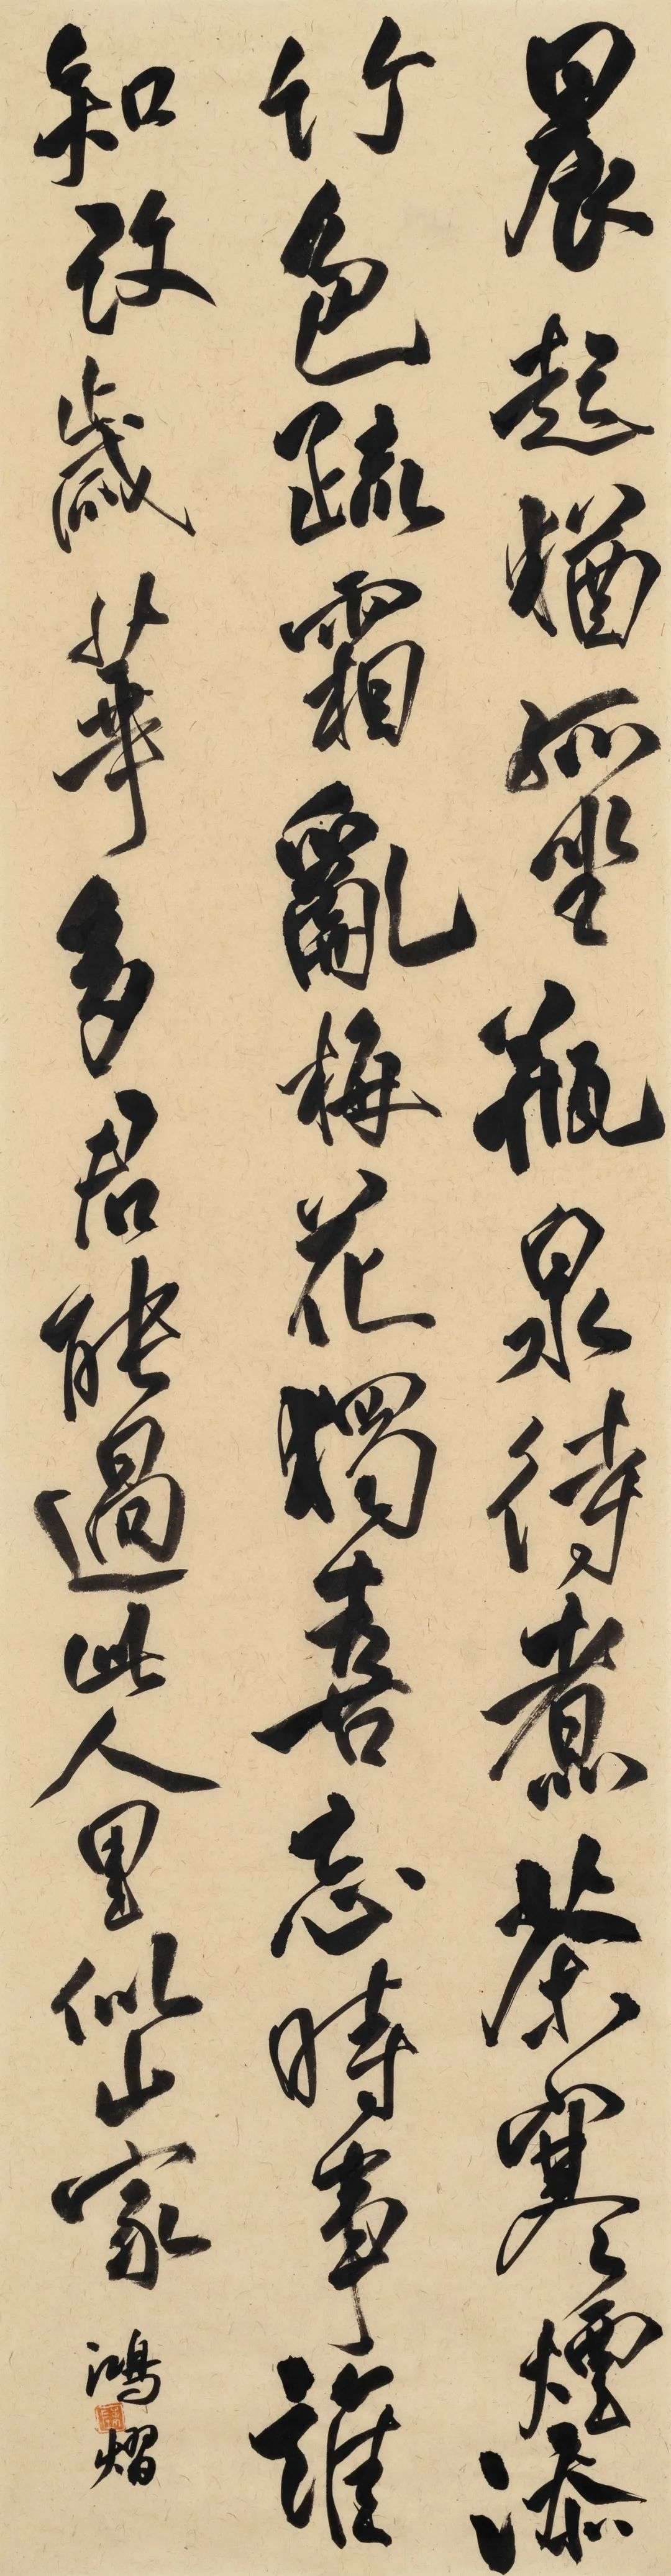 晨起猶孤坐瓶泉待煮茶寒煙添
竹色疏霜亂梅花獨喜忘時事誰
知改歲華多君能過此人里似山家
鴻熠